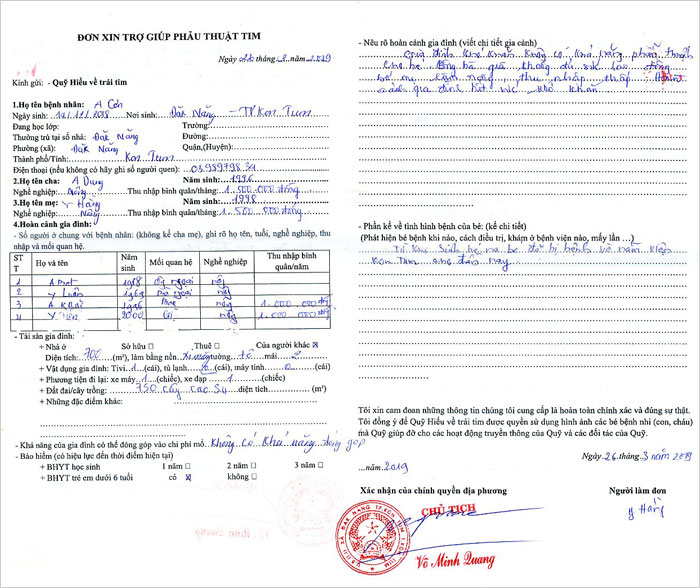 ĐƠN XIN TRỢ GIÚP PHẪU THUẬT TIM
Ngày 26 tháng 3 năm 2019
Kính gửi: - Quỹ Hiểu về trái tim
1.Họ tên bệnh nhân: A Con
Ngày sinh: 14/12/2018 Nơi sinh: Đăk Năng - TP Kon Tum
Đang học lớp: Trường:
Thường trú tại số nhà: Đăk Năng Đường:
Phường (xã): Đăk Năng Quận,(Huyện):
Thành phố/Tỉnh: Kon Tum
Điện thoại (nếu không có hãy ghi số người quen):
2.Họ tên cha: A Dung Năm sinh: 1996
Nghề nghiệp: Nông Thu nhập bình quân/tháng: 1.500.000 đồng
3.Họ tên mẹ: Y Hằng Năm sinh: 1998
Nghề nghiệp: Nông Thu nhập bình quân/tháng: 1.500.000 đồng
4.Hoàn cảnh gia đình:
- Số người ở chung với bệnh nhân: (không kể cha mẹ), ghi rõ họ tên, tuổi, nghề nghiệp, thu
nhập và mối quan hệ.
STT Họ và tên Năm sinh Mối quan hệ Nghề nghiệp Thu nhập bình quân/năm
1 1968 Ông ngoại nông
2 Y Luân 1969 Bà ngoại nông
3 1996 nông 1.000.000 đồng
4 2000 nông 1.000.000
- Tài sản gia đình:
+ Nhà ở Sở hữu ☐ Thuê ☐ Của người khác ☒
Diện tích: 700 (m²), làm bằng nền: xi măng tường: tô mái
+ Vật dụng gia đình: Tivi 1 (cái), tủ lạnh (cái), máy tính 0 (cái)
+ Phương tiện đi lại: xe máy 1 (chiếc), xe đạp 1 (chiếc)
+ Đất đai/cây trồng: 750 cây cao su diện tích (m²)
+ Những đặc điểm khác:
- Khả năng của gia đình có thể đóng góp vào chi phí mổ: Không có khả năng đóng góp
- Bảo hiểm (có hiệu lực đến thời điểm hiện tại):
+ BHYT học sinh 1 năm ☐ 2 năm ☐ 3 năm ☐
+ BHYT trẻ em dưới 6 tuổi có ☒ không ☐
- Nêu rõ hoàn cảnh gia đình (viết chi tiết gia cảnh)
Gia đình khó khăn không có khả năng phẫu thuật
cho bé. Ông bà già không đủ sức lao động
bố mẹ làm nông thu nhập thấp Hoàn
cảnh gia đình hết sức khó khăn
- Phần kể về tình hình bệnh của bé: (kể chi tiết)
(Phát hiện bé bệnh khi nào, cách điều trị, khám ở bệnh viện nào, mấy lần …)
Từ khi sinh ra bé đã bị bệnh và nằm viện
Kon Tum cho đến nay
Tôi xin cam đoan những thông tin chúng tôi cung cấp là hoàn toàn chính xác và đúng sự thật.
Tôi đồng ý để Quỹ Hiểu về trái tim được quyền sử dụng hình ảnh các bé bệnh nhi (con, cháu)
mà Quỹ giúp đỡ cho các hoạt động truyền thông của Quỹ và các đối tác của Quỹ.
Ngày 26 tháng 3 năm 2019
năm 2019
Xác nhận của chính quyền địa phương Người làm đơn
CHỦ TỊCH
Y Hằng
Võ Minh Quang